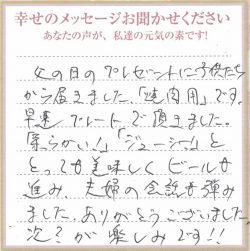 幸せのメッセージお聞かせください
あなたの声が、私達の元気の素です!
父の日のプレゼントに子供たち
から届きました。「焼肉用」です。
早速プレートで頂きました。
柔らかい!「ジューシー」と
とっても美味しくビールも
進み、夫婦の会話も弾み
ました。ありがとうございました
次が楽しみです!!